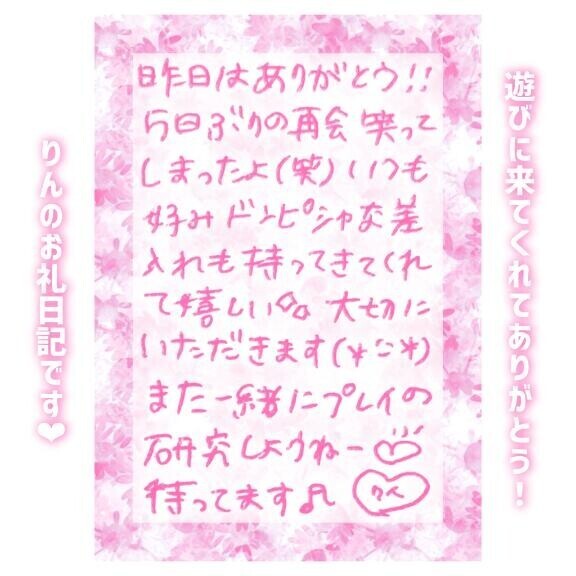 遊びに来てくれてありがとう！
昨日はありがとう!!
5日ぶりの再会 笑って
しまったよ(笑)いつも
好みドンピシャな差
入れも持ってきてくれ
て嬉しい 大切に
いただきます(*ᵕ*)
また一緒にプレイの
研究しようねー
待ってます♫
りんのお礼日記です♥